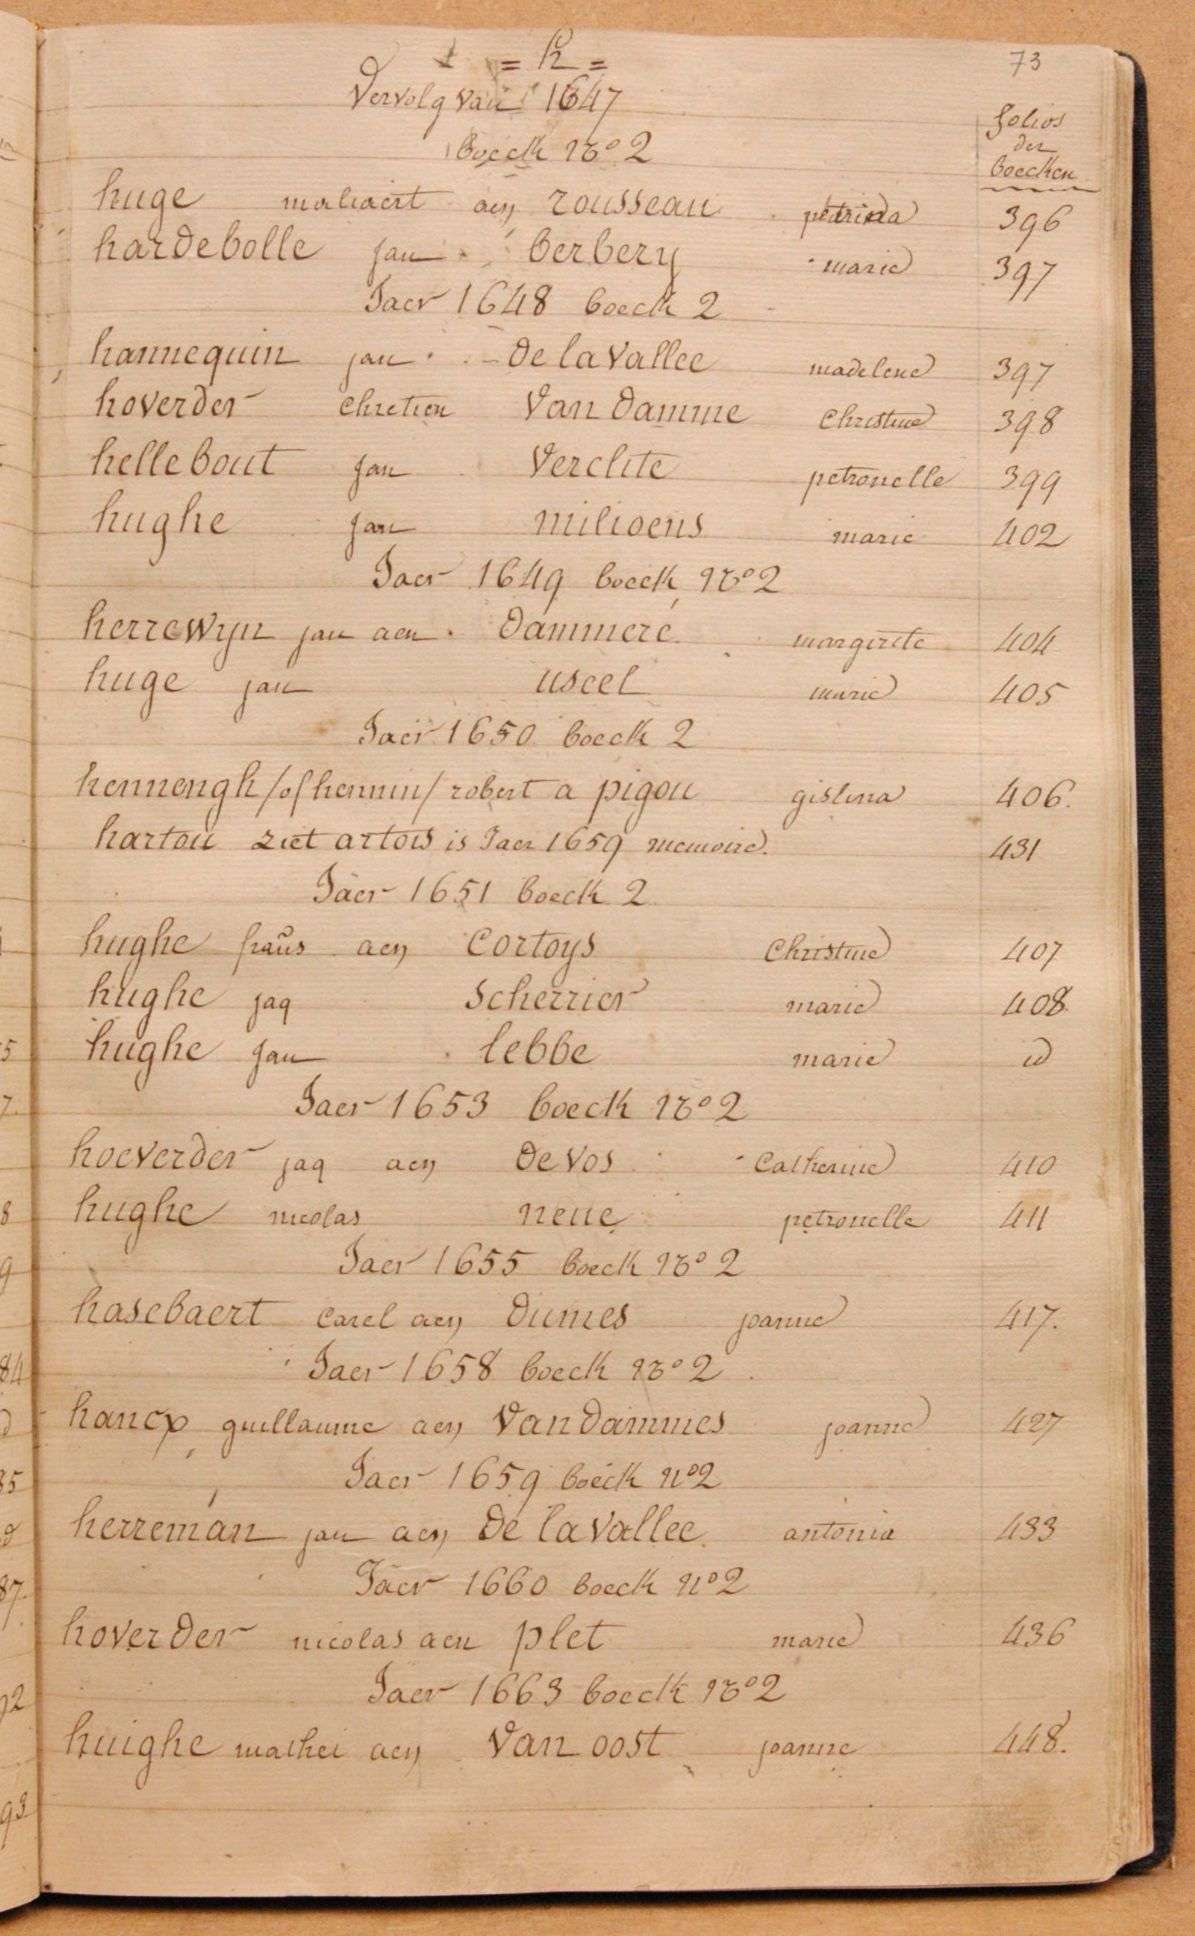 = h =
73
vervolg van 1647
folios
der
boecken
boeck no 2
huge maliaert aen rousseau petrina 396
hardebolle jan berbery marie 397
Jaer 1648 boeck 2
hannequin jan de la vallee madelene 397
hoverder chretien van damme christine 398
hellebout jan verclite petronelle 399
hughe jan milioens marie 402
Jaer 1649 boeck no 2
herrewyn jan aen dammeré margirete 404
huge jan uscel marie 405
Jaer 1650 boeck 2
hennengh /of hennin/ robert a pigou gislina 406.
hartou ziet artois is Jaer 1659 memoire. 431
Jaer 1651 boeck 2
hughe frans aen cortoys christine 407
hughe jaq scherrier marie 408
hughe jan lebbe marie id
Jaer 1653 boeck no 2
hoeverder jaq aen de vos catherine 410
hughe nicolas neue petronelle 411
Jaer 1655 boeck no 2
hasebaert carel aen dumes joanne 417.
Jaer 1658 boeck no 2
hancx guillaume aen van dammes joanne 427
Jaer 1659 boeck no 2
herreman jan aen de la vallee antonia 433
Jaer 1660 boeck no 2
hoverder nicolas aen plet marie 436
Jaer 1663 boeck no 2
huighe mathei aen van oost joanne 448.